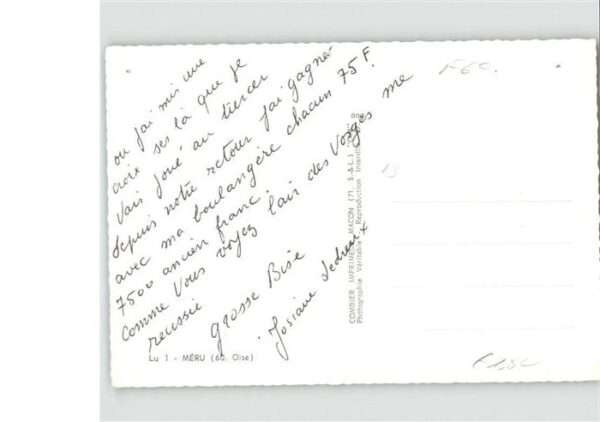 ou j'ai mis une
croix ses là que je
vais joué au tiercer
depuis notre retour j'ai gagné
avec ma boulangère chacun 75 F.
7500 ancien franc.
comme vous voyez l'air des Vosges me
reussie
grosse Bise
Josiane
Lu 1 - MÉRU (60. Oise)
COMBIER IMPRIMEUR MACON (71. S.-&-L.)
Photographie Véritable Reproduction
13